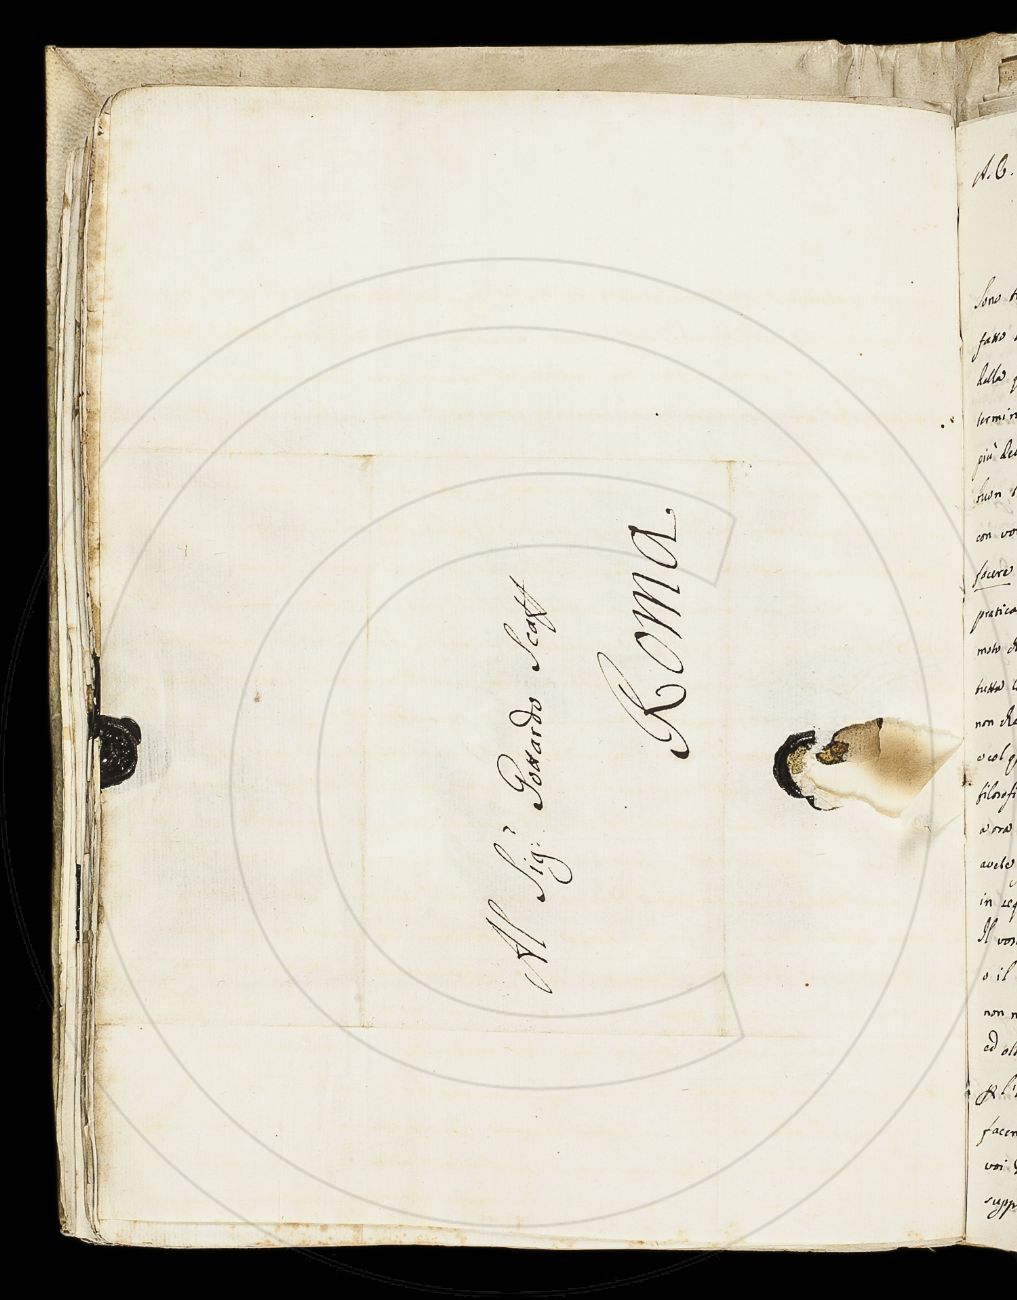 Al Sig.r Gottardo Scaff
Roma
A.C.
Sono
fatto
della
termin
più
buon
con vo
facere
pratica
moto
tutta
non
e col
filosofi
a ora
avete
in
Il vos
o il
non
ed
facen
voi
supp